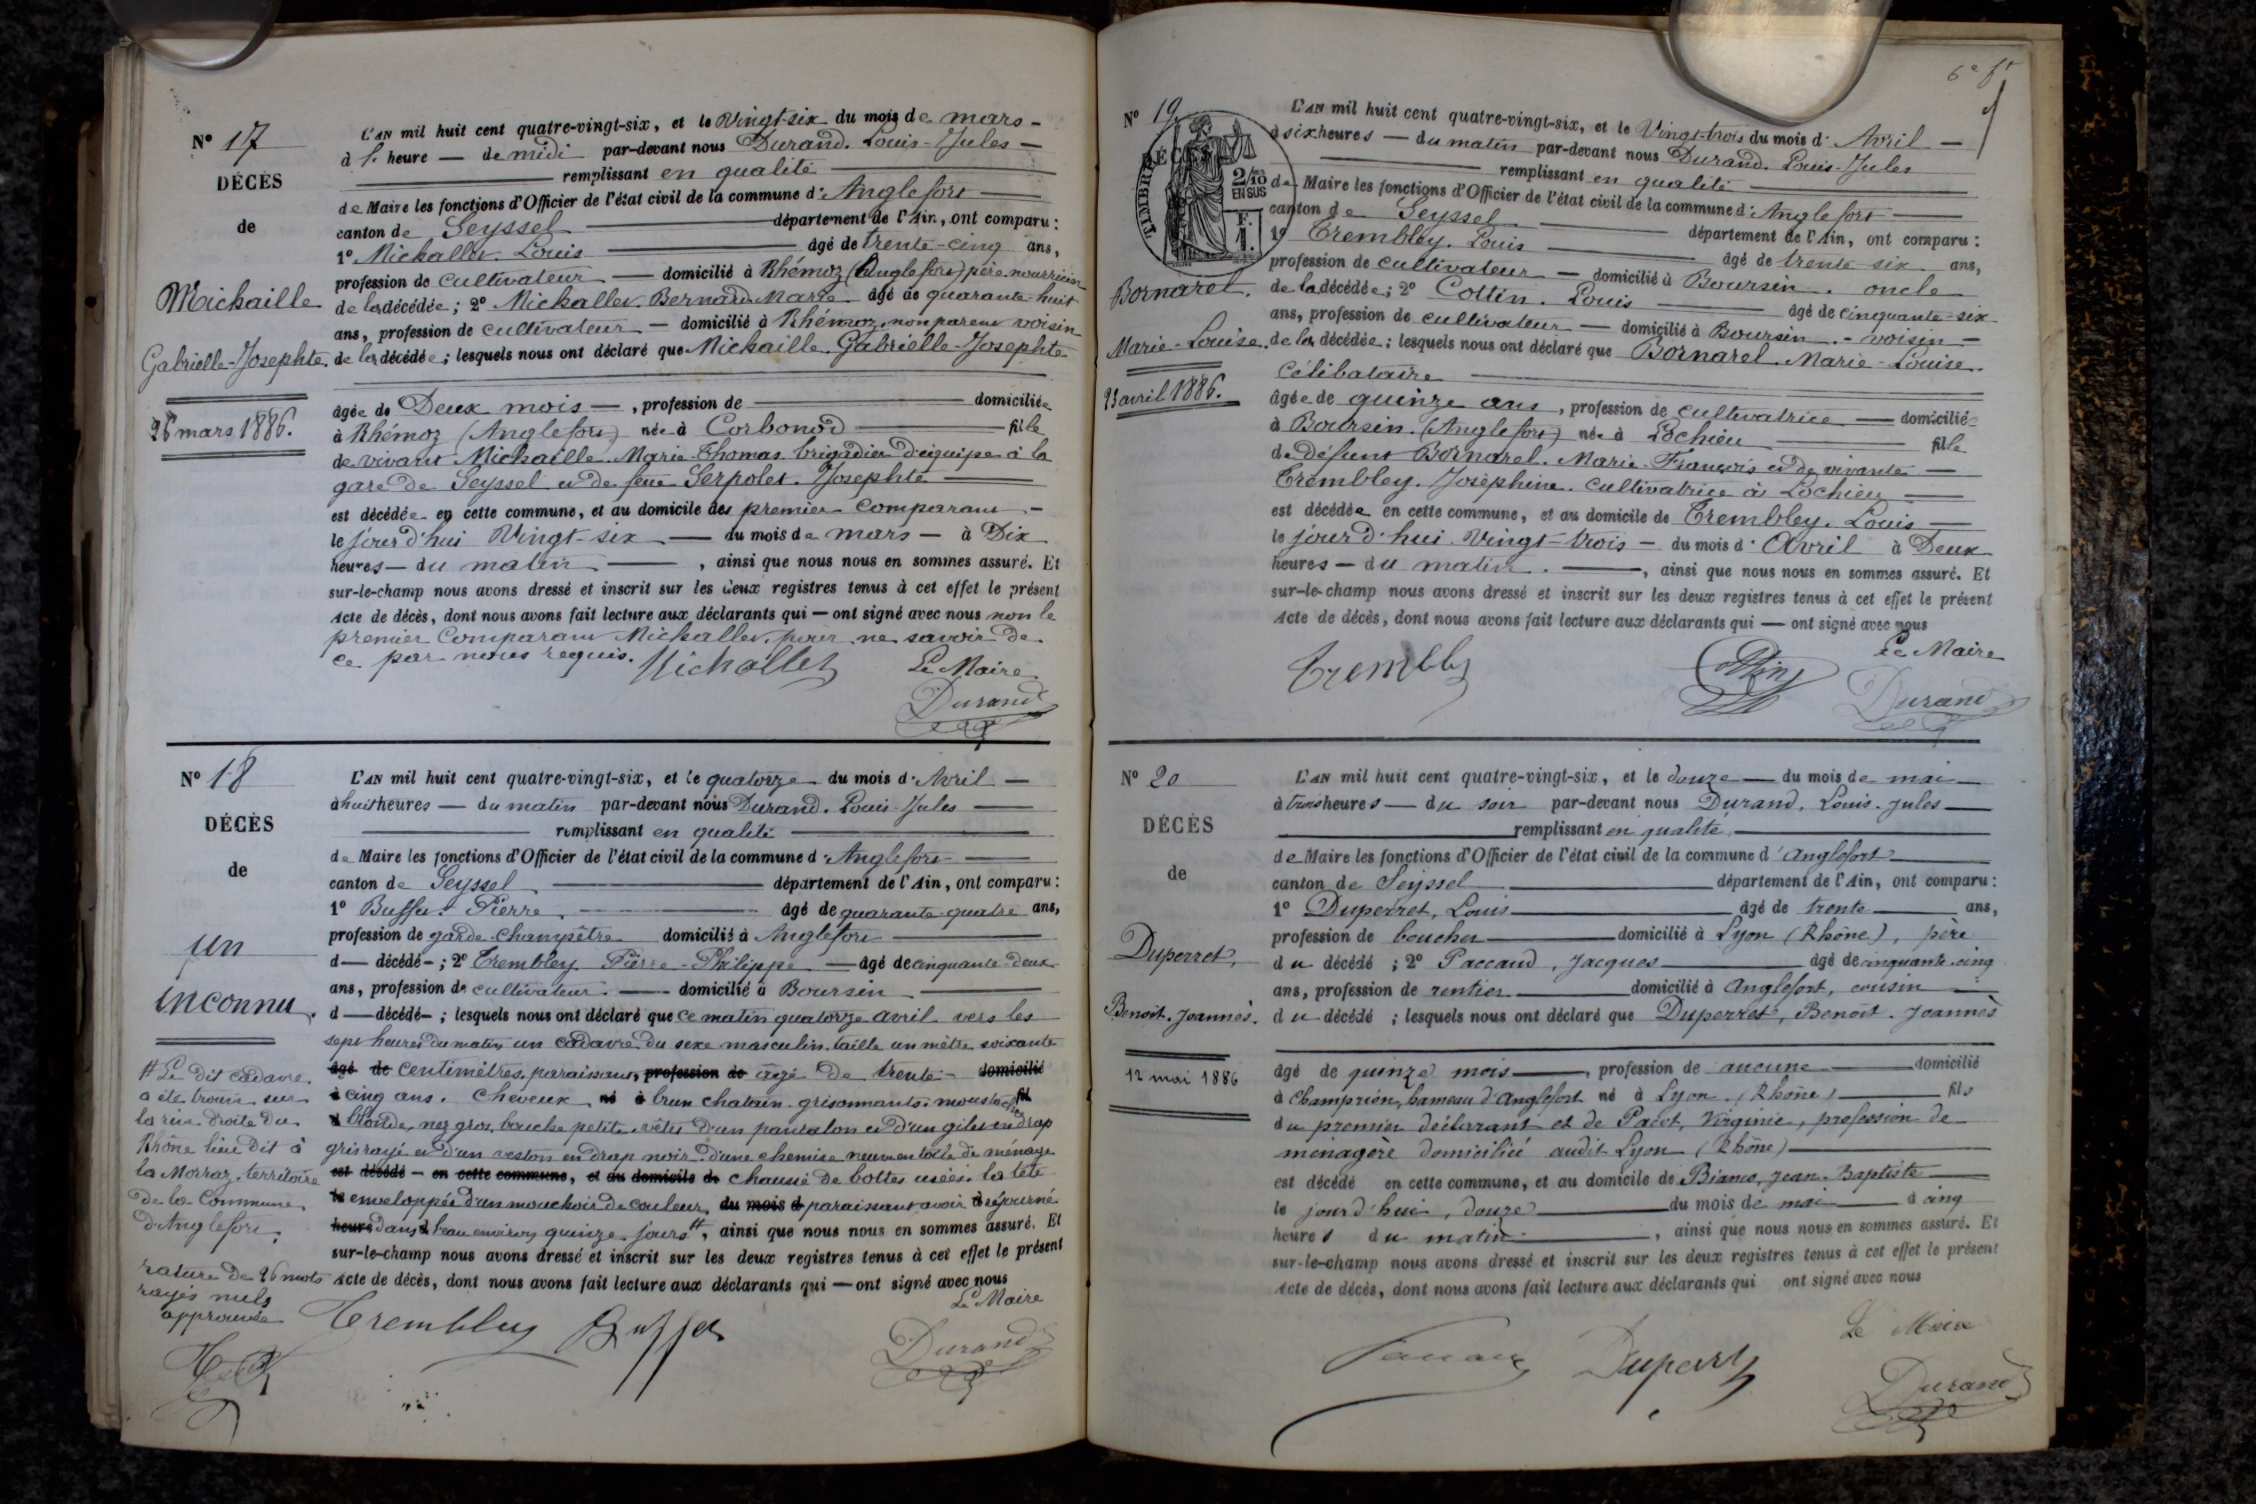 Nº 17
DÉCÈS
de
Michaille
Gabrielle-Josephte.
26 mars 1886.
L'AN mil huit cent quatre-vingt-six, et le Vingt-six du mois de mars
à 1. heure — de midi par-devant nous Durand. Louis-Jules
remplissant en qualité
de Maire les fonctions d'Officier de l'état civil de la commune d'Anglefort
canton de Seyssel département de l'Ain, ont comparu :
1º Michallet. Louis âgé de trente-cinq ans,
profession de cultivateur — domicilié à Rhémoz (Anglefort) père nourricier
de la décédée ; 2º Michallet. Bernard Marie âgé de quarante-huit
ans, profession de cultivateur — domicilié à Rhémoz, non parent voisin
de la décédée ; lesquels nous ont déclaré que Michaille. Gabrielle-Josephte
âgée de Deux mois — , profession de domiciliée
à Rhémoz (Anglefort) née à Corbonod fille
de vivant Michaille. Marie-Thomas brigadier d'équipe à la
gare de Seyssel et de feue Serpolet. Josephte
est décédée en cette commune, et au domicile des premier comparant
le jour d'hui Vingt-six — du mois de mars — à Dix
heures — du matin , ainsi que nous nous en sommes assuré. Et
sur-le-champ nous avons dressé et inscrit sur les deux registres tenus à cet effet le présent
Acte de décès, dont nous avons fait lecture aux déclarants qui — ont signé avec nous non le
premier comparant Michallet, pour ne savoir de
ce par nous requis. Michallet Le Maire
Durand
Nº 18
DÉCÈS
de
un
inconnu.
L'AN mil huit cent quatre-vingt-six, et le quatorze du mois d'Avril
à huit heures — du matin par-devant nous Durand. Louis-Jules
remplissant en qualité
de Maire les fonctions d'Officier de l'état civil de la commune d'Anglefort
canton de Seyssel département de l'Ain, ont comparu :
1º Buffet. Pierre. âgé de quarante-quatre ans,
profession de garde-champêtre domicilié à Anglefort
d — décédé - ; 2º Trembley Pierre-Philippe — âgé de cinquante-deux
ans, profession de cultivateur. — domicilié à Boursin
d — décédé - ; lesquels nous ont déclaré que ce matin quatorze avril vers les
sept heures du matin un cadavre du sexe masculin, taille un mètre soixante
âgé de centimètres, paraissant, profession de âgé de trente- domicilié
à cinq ans. cheveux né à brun chatain grisonnants. moustaches fil
d blonde, nez gros, bouche petite, vêtu d'un pantalon et d'un gilet en drap
gris rayé et d'un veston en drap noir. d'une chemise neuve en toile de ménage
est décédé - en cette commune, et au domicile de chaussé de bottes usées. la tête
le enveloppée d'un mouchoir de couleur, du mois d paraissant avoir à séjourné
heure dans l'eau environ quinze jours #, ainsi que nous nous en sommes assuré. Et
sur-le-champ nous avons dressé et inscrit sur les deux registres tenus à cet effet le présent
Acte de décès, dont nous avons fait lecture aux déclarants qui — ont signé avec nous
Le Maire
Trembley Buffet Durand
# Le dit cadavre
a été trouvé sur
la rive droite du
Rhône lieu dit à
la Morraz, territoire
de la Commune
d'Anglefort.
rature de 26 mots
rayés nuls
approuvée
6e ft
Nº 19
TIMBRE
DÉCÈS
2/10
EN SUS
F.
1.
Bornarel.
Marie-Louise.
23 avril 1886.
L'AN mil huit cent quatre-vingt-six, et le Vingt-trois du mois d'Avril
à six heures — du matin par-devant nous Durand. Louis-Jules
remplissant en qualité
de Maire les fonctions d'Officier de l'état civil de la commune d'Anglefort
canton de Seyssel département de l'Ain, ont comparu :
1º Trembley. Louis âgé de trente-six ans,
profession de cultivateur — domicilié à Boursin. oncle
de la décédée ; 2º Cottin. Louis âgé de cinquante-six
ans, profession de cultivateur — domicilié à Boursin. - voisin -
de la décédée ; lesquels nous ont déclaré que Bornarel. Marie-Louise.
Célibataire
âgée de quinze ans , profession de cultivatrice — domiciliée
à Boursin. (Anglefort) née à Lochieu fille
de défunt Bornarel. Marie-François et de vivante
Trembley. Joséphine. cultivatrice à Lochieu
est décédée en cette commune, et au domicile de Trembley. Louis
le jour d'hui Vingt-trois — du mois d'Avril à Deux
heures — du matin. , ainsi que nous nous en sommes assuré. Et
sur-le-champ nous avons dressé et inscrit sur les deux registres tenus à cet effet le présent
Acte de décès, dont nous avons fait lecture aux déclarants qui — ont signé avec nous
Le Maire
Trembley Cottin Durand
Nº 20
DÉCÈS
de
Duperret,
Benoît. Joannès.
12 mai 1886
L'AN mil huit cent quatre-vingt-six, et le douze — du mois de mai
à trois heures — du soir par-devant nous Durand, Louis-Jules
remplissant en qualité
de Maire les fonctions d'Officier de l'état civil de la commune d'Anglefort
canton de Seyssel département de l'Ain, ont comparu :
1º Duperret, Louis âgé de trente ans,
profession de boucher domicilié à Lyon (Rhône), père
du décédé ; 2º Paccaud, Jacques âgé de cinquante-cinq
ans, profession de rentier domicilié à Anglefort, cousin
du décédé ; lesquels nous ont déclaré que Duperret, Benoît. Joannès
âgé de quinze mois , profession de aucune domicilié
à Champrion, hameau d'Anglefort né à Lyon (Rhône) fils
du premier déclarant et de Pacot, Virginie, profession de
ménagère domiciliée audit Lyon (Rhône)
est décédé en cette commune, et au domicile de Bianco, Jean-Baptiste
le jourd'hui, douze du mois de mai à cinq
heures du matin , ainsi que nous nous en sommes assuré. Et
sur-le-champ nous avons dressé et inscrit sur les deux registres tenus à cet effet le présent
Acte de décès, dont nous avons fait lecture aux déclarants qui ont signé avec nous
Le Maire
Paccaud Duperret Durand